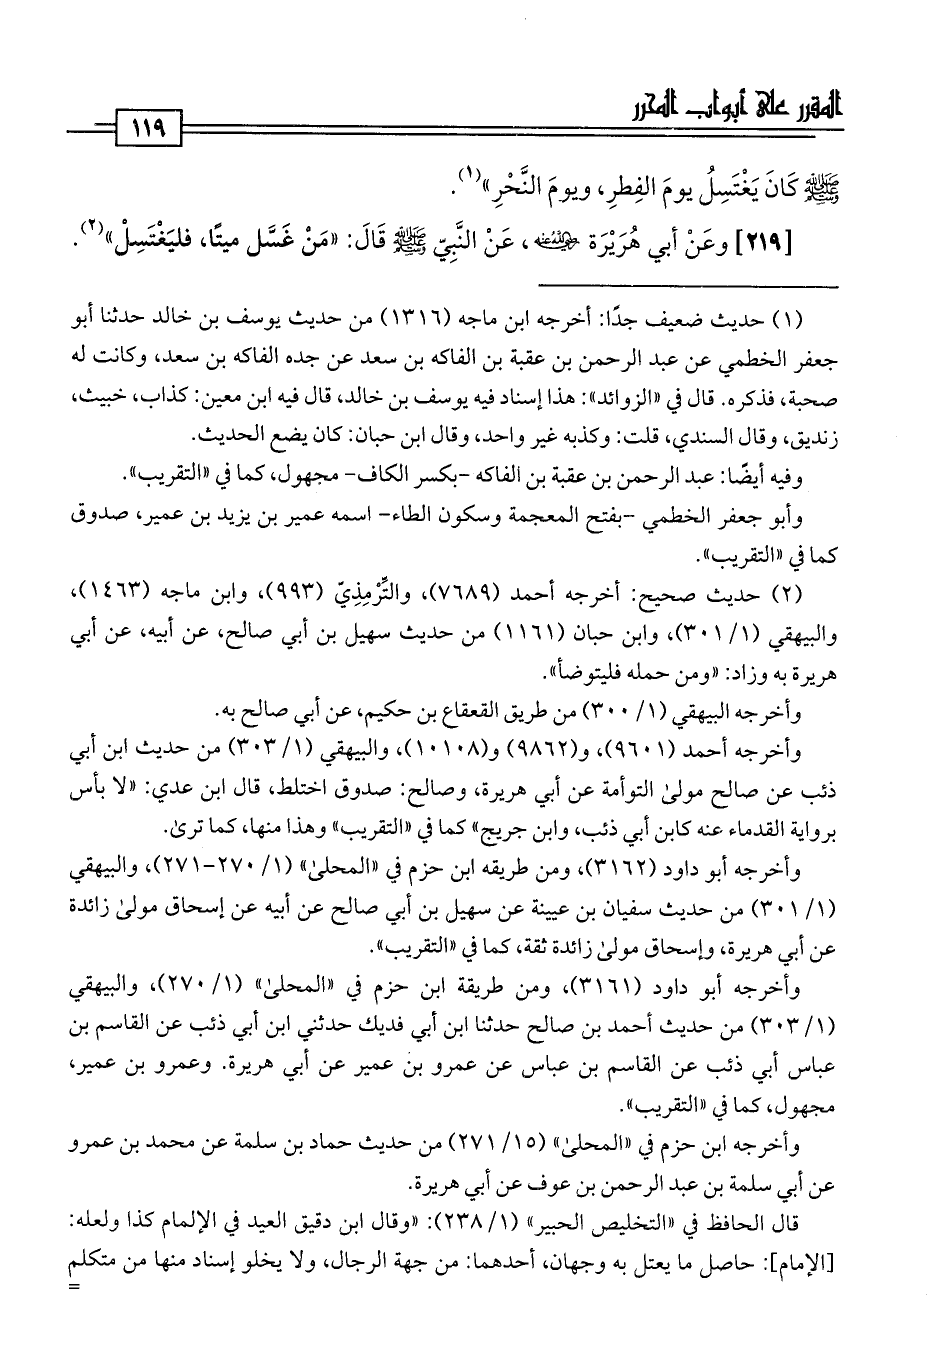 المقرر على أبواب المحرر
١١٩
ﷺ كَانَ يَغْتَسِلُ يومَ الفِطرِ، ويومَ النَّحْرِ»(١).
[٢١٩] وعَنْ أبي هُرَيْرَة رضي الله عنه، عَنْ النَّبِيّ ﷺ قَالَ: «مَنْ غَسَّل ميتًا، فليَغْتَسِلْ»(٢).
(١) حديث ضعيف جدًا: أخرجه ابن ماجه (١٣١٦) من حديث يوسف بن خالد حدثنا أبو
جعفر الخطمي عن عبد الرحمن بن عقبة بن الفاكه بن سعد عن جده الفاكه بن سعد، وكانت له
صحبة، فذكره. قال في «الزوائد»: هذا إسناد فيه يوسف بن خالد، قال فيه ابن معين: كذاب، خبيث،
زنديق، وقال السندي، قلت: وكذبه غير واحد، وقال ابن حبان: كان يضع الحديث.
وفيه أيضًا: عبد الرحمن بن عقبة بن الفاكه -بكسر الكاف- مجهول، كما في «التقريب».
وأبو جعفر الخطمي -بفتح المعجمة وسكون الطاء- اسمه عمير بن يزيد بن عمير، صدوق
كما في «التقريب».
(٢) حديث صحيح: أخرجه أحمد (٧٦٨٩)، والتِّرْمِذِيّ (٩٩٣)، وابن ماجه (١٤٦٣)،
والبيهقي (٣٠١/١)، وابن حبان (١١٦١) من حديث سهيل بن أبي صالح، عن أبيه، عن أبي
هريرة به وزاد: «ومن حمله فليتوضأ».
وأخرجه البيهقي (٣٠٠/١) من طريق القعقاع بن حكيم، عن أبي صالح به.
وأخرجه أحمد (٩٦٠١)، و(٩٨٦٢) و(١٠١٠٨)، والبيهقي (٣٠٣/١) من حديث ابن أبي
ذئب عن صالح مولىٰ التوأمة عن أبي هريرة، وصالح: صدوق اختلط، قال ابن عدي: «لا بأس
برواية القدماء عنه كابن أبي ذئب، وابن جريج» كما في «التقريب» وهذا منها، كما ترىٰ.
وأخرجه أبو داود (٣١٦٢)، ومن طريقه ابن حزم في «المحلىٰ» (٢٧٠/١-٢٧١)، والبيهقي
(٣٠١/١) من حديث سفيان بن عيينة عن سهيل بن أبي صالح عن أبيه عن إسحاق مولىٰ زائدة
عن أبي هريرة، وإسحاق مولىٰ زائدة ثقة، كما في «التقريب».
وأخرجه أبو داود (٣١٦١)، ومن طريقة ابن حزم في «المحلىٰ» (٢٧٠/١)، والبيهقي
(٣٠٣/١) من حديث أحمد بن صالح حدثنا ابن أبي فديك حدثني ابن أبي ذئب عن القاسم بن
عباس أبي ذئب عن القاسم بن عباس عن عمرو بن عمير عن أبي هريرة. وعمرو بن عمير،
مجهول، كما في «التقريب».
وأخرجه ابن حزم في «المحلىٰ» (٢٧١/١٥) من حديث حماد بن سلمة عن محمد بن عمرو
عن أبي سلمة بن عبد الرحمن بن عوف عن أبي هريرة.
قال الحافظ في «التخليص الحبير» (٢٣٨/١): «وقال ابن دقيق العيد في الإلمام كذا ولعله:
[الإمام]: حاصل ما يعتل به وجهان، أحدهما: من جهة الرجال، ولا يخلو إسناد منها من متكلم
=